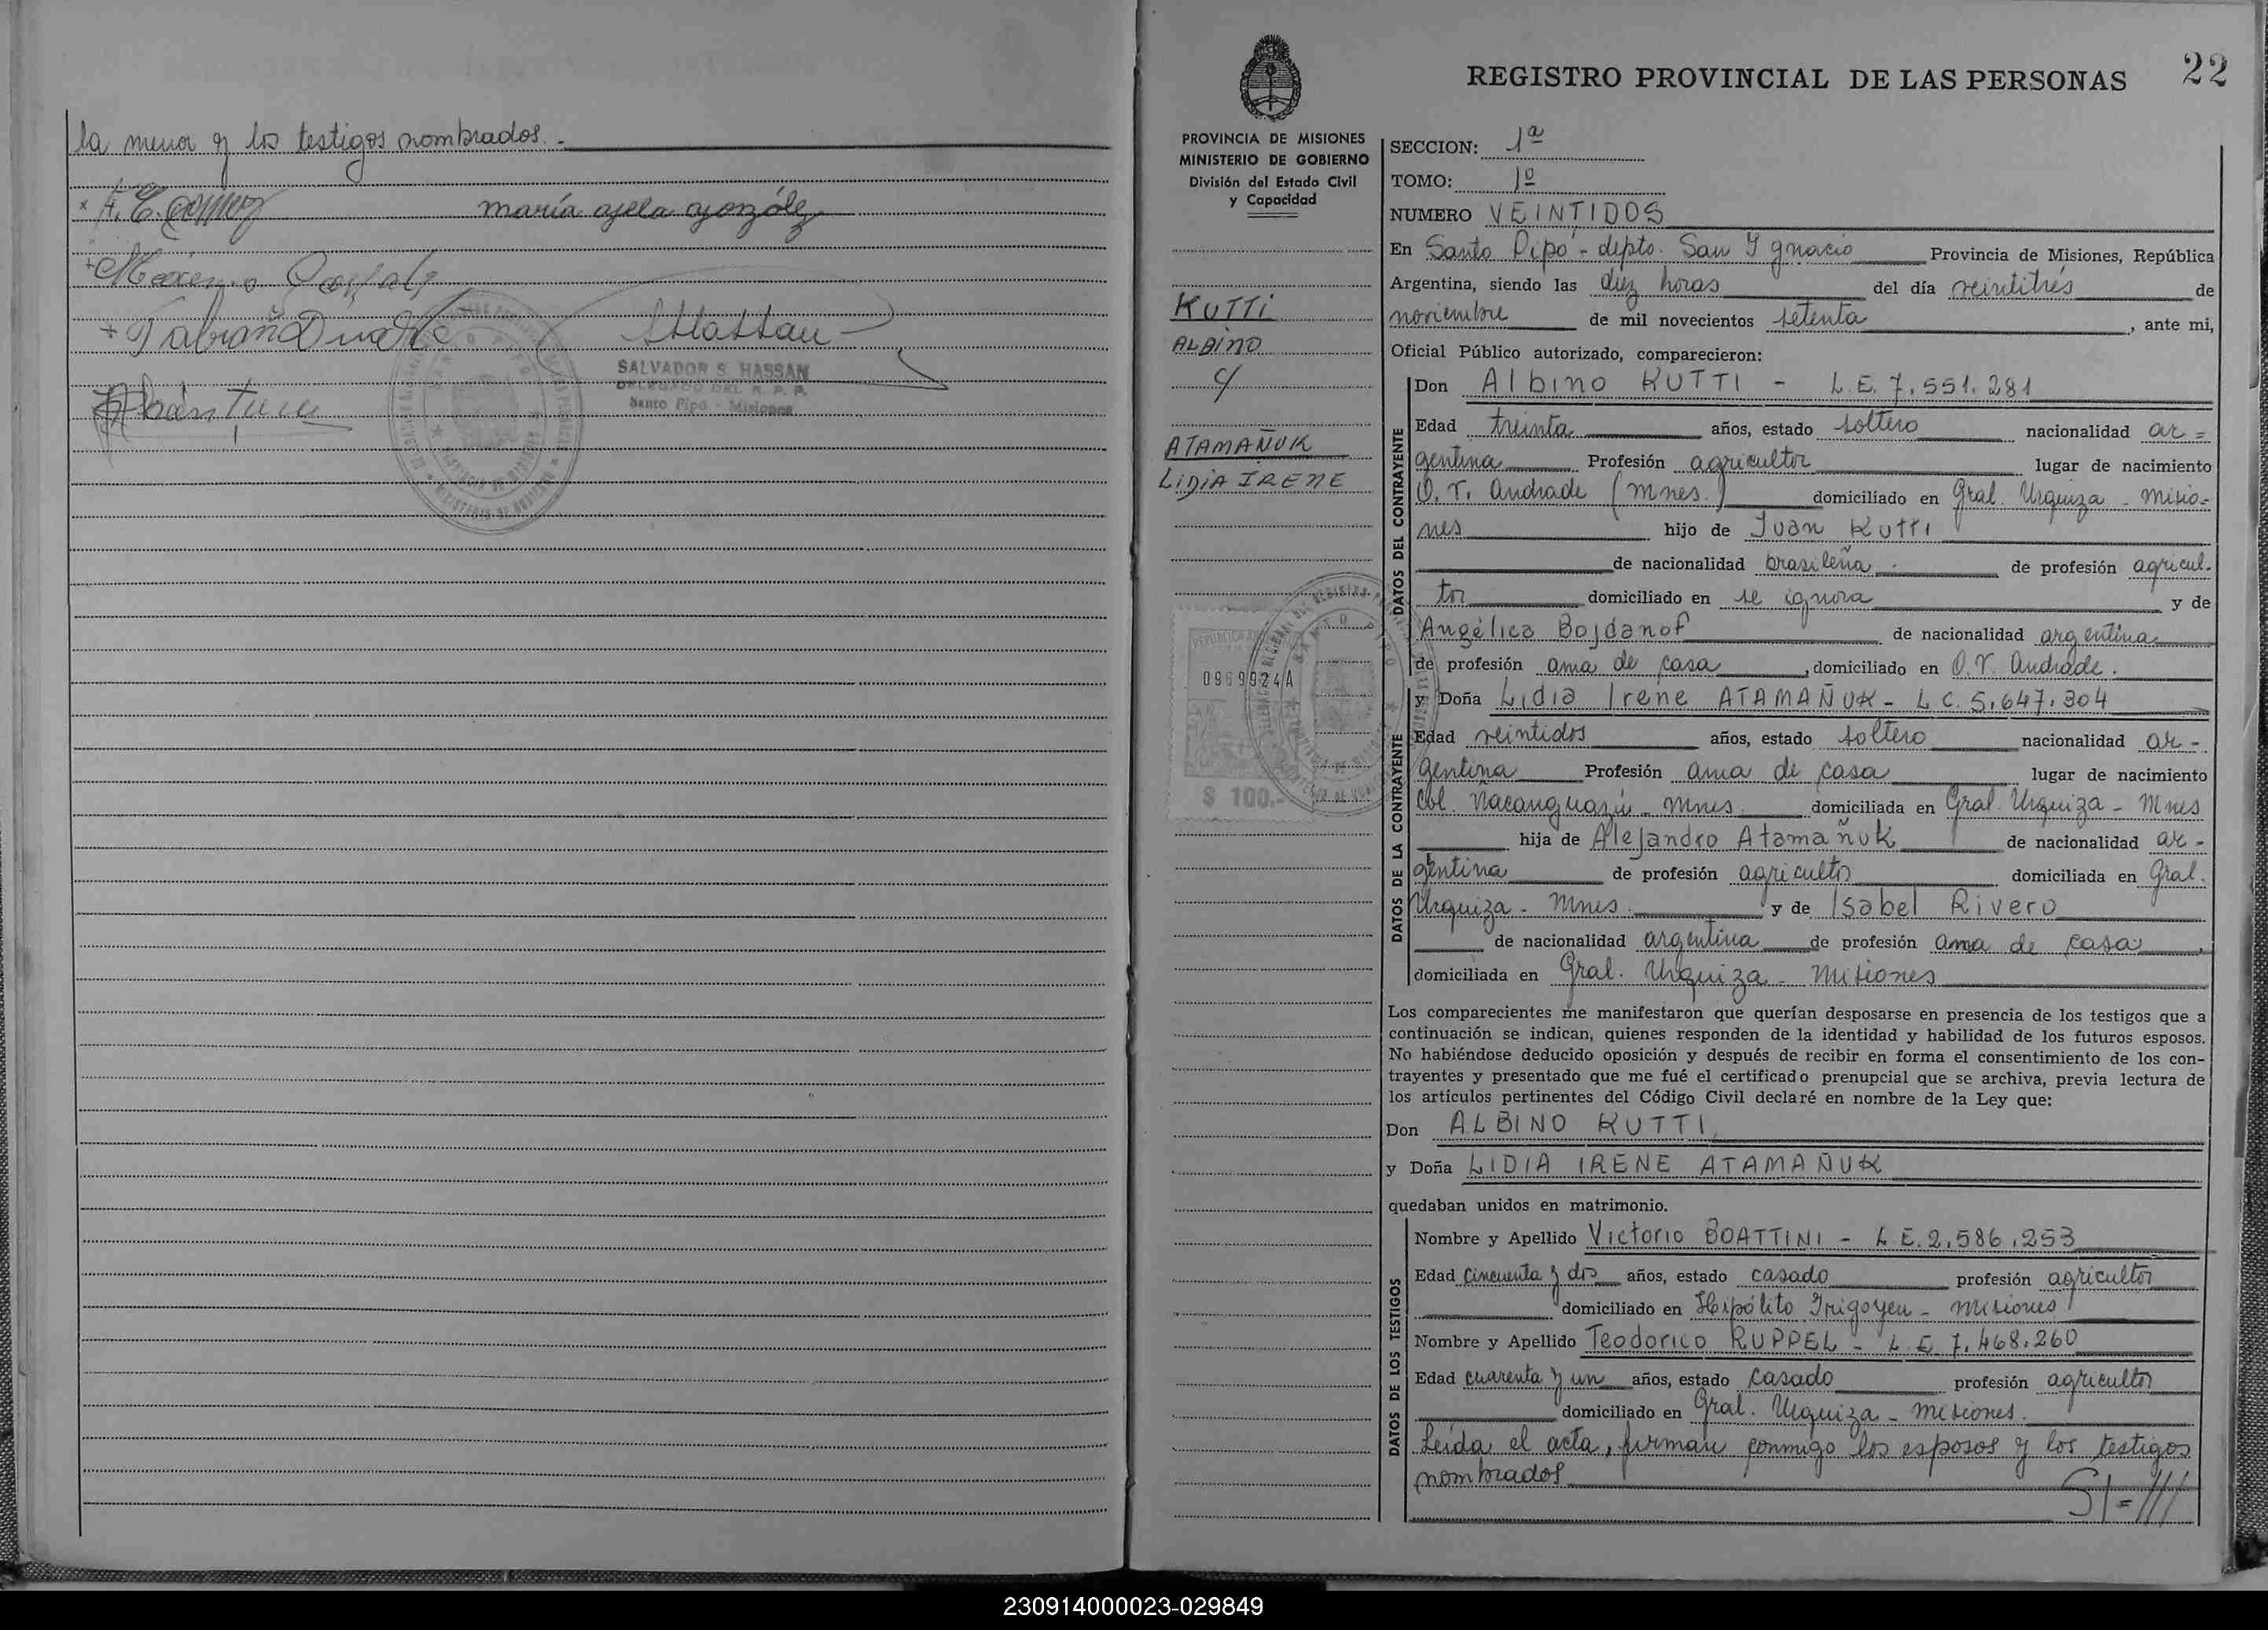 la menor y los testigos nombrados.-
maría ajela gonzólez
SALVADOR S. HASSAN
DELEGADO DEL R. P. P.
Santo Pipó - Misiones
REGISTRO PROVINCIAL DE LAS PERSONAS
22
PROVINCIA DE MISIONES
MINISTERIO DE GOBIERNO
División del Estado Civil
y Capacidad
KUTTI
ALBINO
c/
ATAMAÑUK
LIDIA IRENE
0969924A
$ 100.-
SECCION: 1ª
TOMO: 1º
NUMERO VEINTIDOS
En Santo Pipó - depto. San Ignacio Provincia de Misiones, República
Argentina, siendo las diez horas del día veintitrés de
noviembre de mil novecientos setenta, ante mi,
Oficial Público autorizado, comparecieron:
DATOS DEL CONTRAYENTE
Don Albino KUTTI - L.E. 7.551.281
Edad treinta años, estado soltero nacionalidad ar=
gentina Profesión agricultor lugar de nacimiento
O. V. Andrade (Mnes.) domiciliado en Gral. Urquiza - Misio-
nes hijo de Juan Kutti
de nacionalidad brasileña. de profesión agricul-
tor domiciliado en se ignora y de
Angélica Bojdanof de nacionalidad argentina
de profesión ama de casa, domiciliado en O.V. Andrade.
DATOS DE LA CONTRAYENTE
y Doña Lidia Irene ATAMAÑUK - L C. 5.647.304
Edad veintidos años, estado soltero nacionalidad ar-
gentina Profesión ama de casa lugar de nacimiento
Col. Ñacanguazú - Mnes. domiciliada en Gral. Urquiza - Mnes
hija de Alejandro Atamañuk de nacionalidad ar-
gentina de profesión agricultor domiciliada en Gral.
Urquiza - Mnes. y de Isabel Rivero
de nacionalidad argentina de profesión ama de casa,
domiciliada en Gral. Urquiza - Misiones
Los comparecientes me manifestaron que querían desposarse en presencia de los testigos que a
continuación se indican, quienes responden de la identidad y habilidad de los futuros esposos.
No habiéndose deducido oposición y después de recibir en forma el consentimiento de los con-
trayentes y presentado que me fué el certificado prenupcial que se archiva, previa lectura de
los artículos pertinentes del Código Civil declaré en nombre de la Ley que:
Don ALBINO KUTTI
y Doña LIDIA IRENE ATAMAÑUK
quedaban unidos en matrimonio.
DATOS DE LOS TESTIGOS
Nombre y Apellido Victorio BOATTINI - L.E. 2.586.253
Edad cincuenta y dos años, estado casado profesión agricultor
domiciliado en Hipólito Irigoyen - Misiones
Nombre y Apellido Teodorico RUPPEL - L.E. 7.468.260
Edad cuarenta y un años, estado casado profesión agricultor
domiciliado en Gral. Urquiza - Misiones.
Leída el acta, firman conmigo los esposos y los testigos
nombrados
S/=///
230914000023-029849